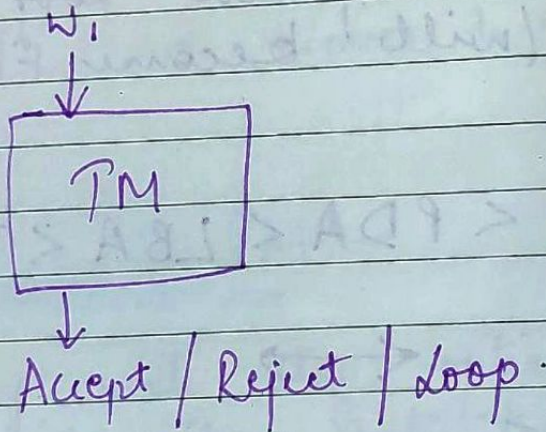 W1
TM
Accept / Reject / Loop.